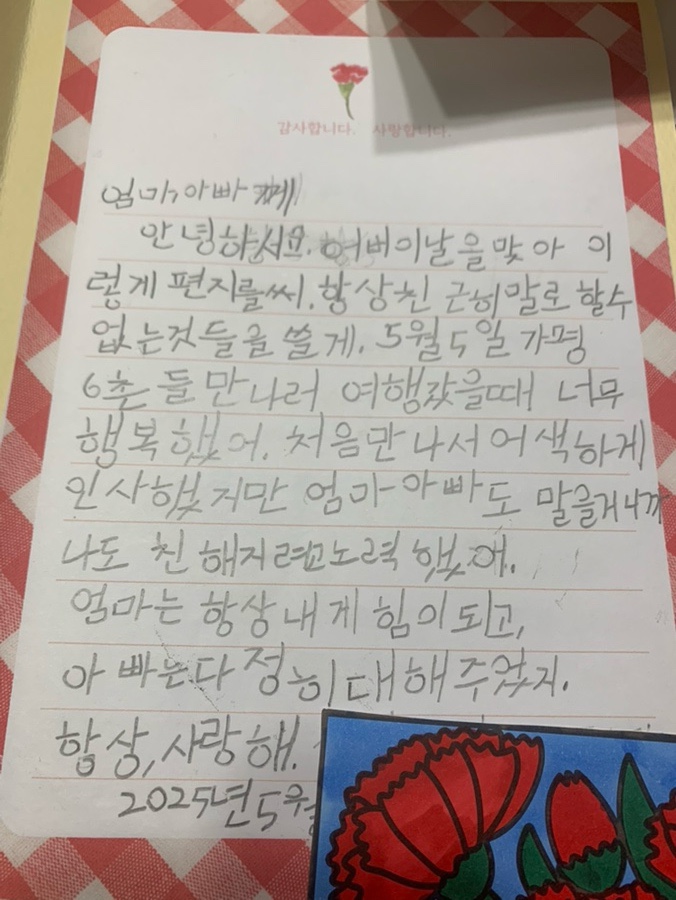 감사합니다. 사랑합니다.
엄마, 아빠께
안녕하세요. 어버이날을 맞아 이
렇게 편지를써. 항상친 근히말로 할수
없는것들을 쓸게. 5월 5일 가평
6촌들 만나러 여행갔을때 너무
행복했어. 처음만나서 어색하게
인사했지만 엄마아빠도 말을거니까
나도 친해지려고노력했어.
엄마는 항상내게 힘이되고,
아빠는다정히대해주었지.
항상,사랑해.
2025년 5월